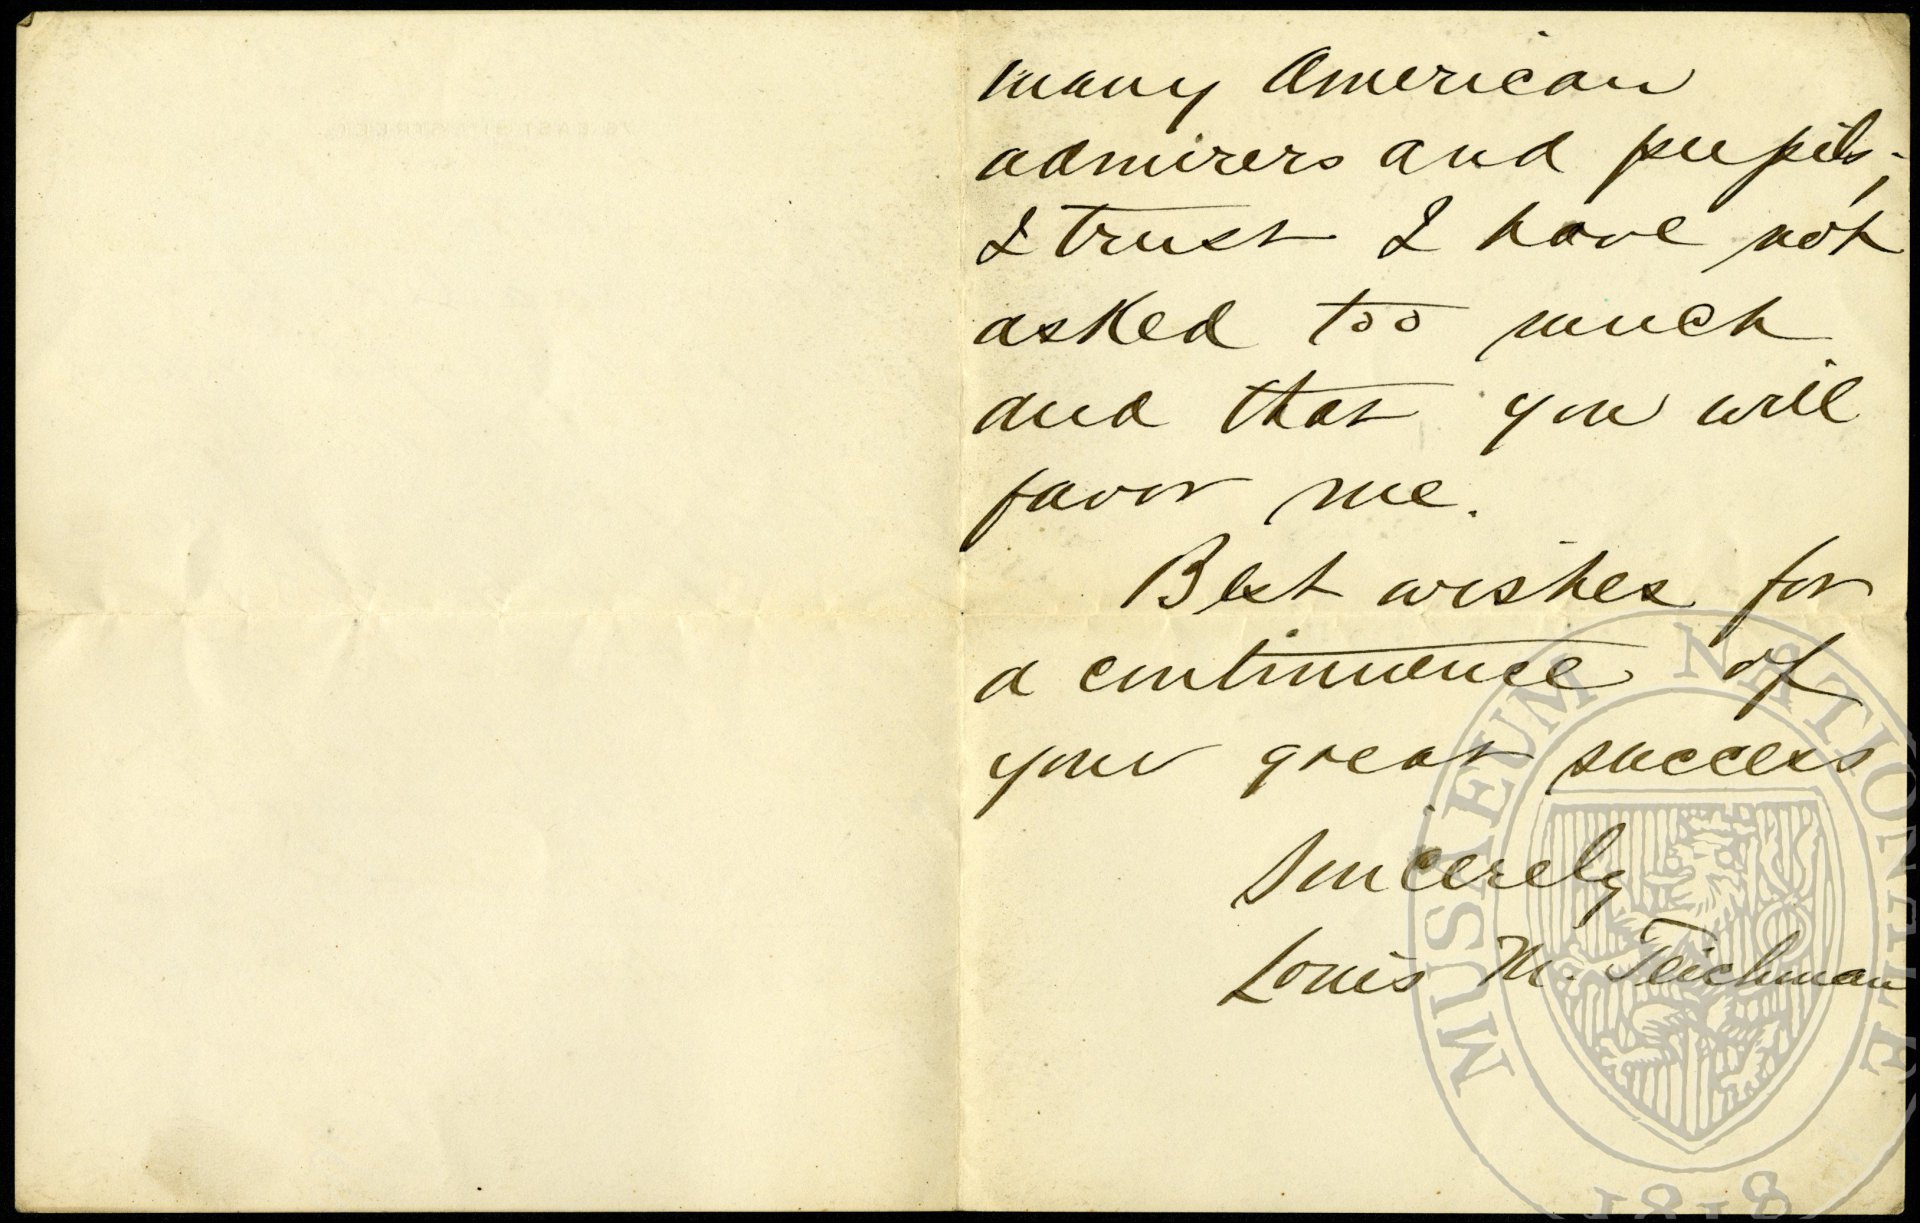 many American
admirers and pupils,-
I trust I have not
asked too much
and that you will
favor me.
Best wishes for
a continuance of
your great success
Sincerely
Louis M. Teichman
MUSAEUM NATIONALE
1818